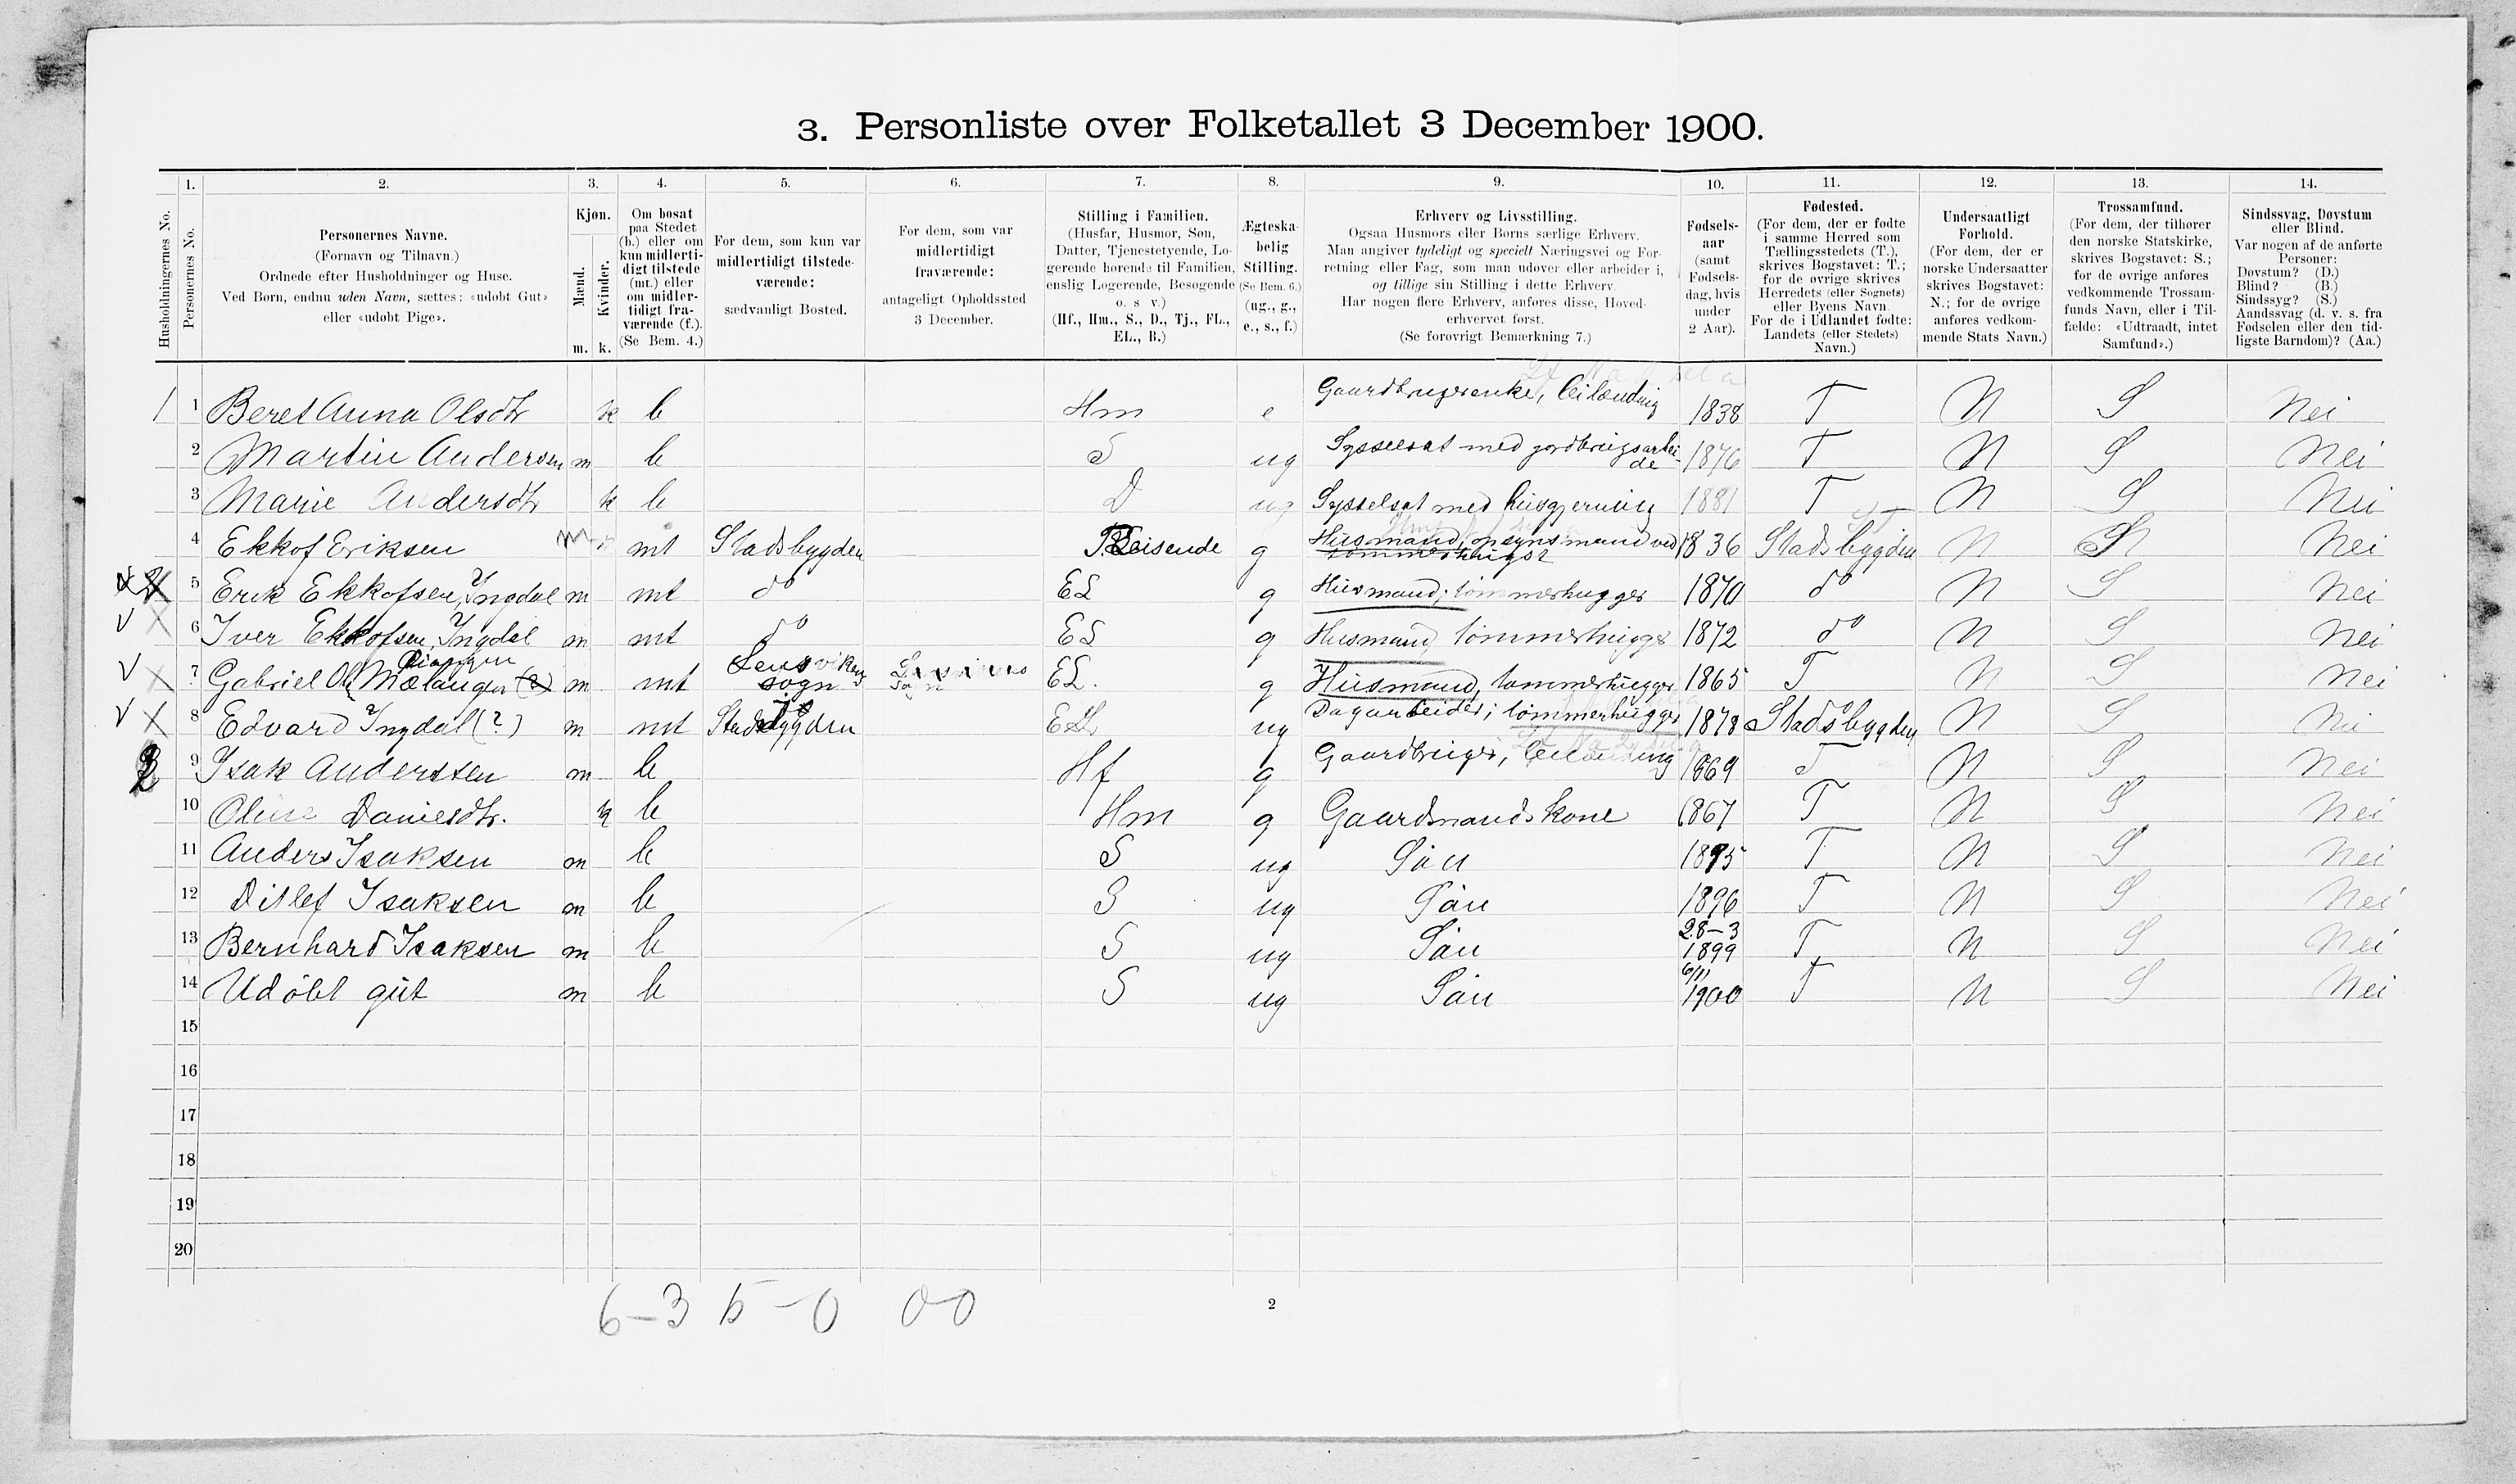 3. Personliste over Folketallet 3 December 1900.
Husholdningernes No.
1.
Personernes No.
2.
Personernes Navne.
(Fornavn og Tilnavn.)
Ordnede efter Husholdninger og Huse.
Ved Børn, endnu uden Navn, sættes: «udøbt Gut»
eller «udøbt Pige».
3.
Kjøn.
Mænd.
Kvinder.
m. k.
4.
Om bosat
paa Stedet
(b.) eller om
kun midlerti-
digt tilstede
(mt.) eller
om midler-
tidigt fra-
værende (f.).
(Se Bem. 4.)
5.
For dem, som kun var
midlertidigt tilstede-
værende:
sædvanligt Bosted.
6.
For dem, som var
midlertidigt
fraværende:
antageligt Opholdssted
3 December.
7.
Stilling i Familien.
(Husfar, Husmor, Søn,
Datter, Tjenestetyende, Lo-
gerende hørende til Familien,
enslig Logerende, Besøgende
o. s v.)
(Hf., Hm., S., D., Tj., FL.,
EL., B.)
8.
Ægteska-
belig
Stilling.
(Se Bem. 6.)
(ug., g.,
e., s., f.)
9.
Erhverv og Livsstilling.
Ogsaa Husmors eller Børns særlige Erhverv.
Man angiver tydeligt og specielt Næringsvei og For-
retning eller Fag, som man udøver eller arbeider i,
og tillige sin Stilling i dette Erhverv.
Har nogen flere Erhverv, anføres disse, Hoved-
erhvervet først.
(Se forøvrigt Bemærkning 7.)
10.
Fødsels-
aar
(samt
Fødsels-
dag, hvis
under
2 Aar).
11.
Fødested.
(For dem, der er fødte
i samme Herred som
Tællingsstedets (T.),
skrives Bogstavet: T.;
for de øvrige skrives
Herredets (eller Sognets)
eller Byens Navn.
For de i Udlandet fødte:
Landets (eller Stedets)
Navn.)
12.
Undersaatligt
Forhold.
(For dem, der er
norske Undersaatter
skrives Bogstavet:
N.; for de øvrige
anføres vedkom-
mende Stats Navn.)
13.
Trossamfund.
(For dem, der tilhører
den norske Statskirke,
skrives Bogstavet: S.;
for de øvrige anføres
vedkommende Trossam-
funds Navn, eller i Til-
fælde: «Udtraadt, intet
Samfund».)
14.
Sindssvag, Døvstum
eller Blind.
Var nogen af de anførte
Personer:
Døvstum? (D.)
Blind? (B.)
Sindssyg? (S.)
Aandssvag (d. v. s. fra
Fødselen eller den tid-
ligste Barndom)? (Aa.)
1 1 Beret Anna Olsdtr k b Hm e Gaardbrugerenke, leilænding 1838 T N S Nei
2 Martin Andersen m b S ug Sysselsat med jordbrugsarbei-
de 1876 T N S Nei
3 Marie Andersdtr k b D ug Sysselsat med husgjerning 1881 T N S Nei
4 Ekkof Eriksen m mt Stadsbygden Reisende g Husmand, opsynsmand ved
tømmerhugst 1836 Stadsbygden N S Nei
5 Erik Ekkofsen, Ingdal m mt do EL g Husmand; tømmerhugger 1870 do N S Nei
6 Iver Ekkofsen, Ingdal m mt do EL g Husmand, tømmerhugger 1872 do N S Nei
7 Gabriel Ols Mælangen (?) m mt Lensvikens
sogn EL. g Husmand, tømmerhugger 1865 T N S Nei
8 Edvard Ingdal (?) m mt Stadsbygden EL ug Dagarbeider; tømmerhugger 1878 Stadsbygden N S Nei
2 9 Isak Anderssen m b Hf g Gaardbruger, leilænding 1869 T N S Nei
10 Oline Danielsdtr. k b Hm g Gaardmandskone 1867 T N S Nei
11 Anders Isaksen m b S ug Søn 1895 T N S Nei
12 Ditlef Isaksen m b S ug Søn 1896 T N S Nei
13 Bernhard Isaksen m b S ug Søn 28-3
1899 T N S Nei
14 Udøbt gut m b S ug Søn 6/11
1900 T N S Nei
15
16
17
18
19
20
6-3 5-0 0-0
2